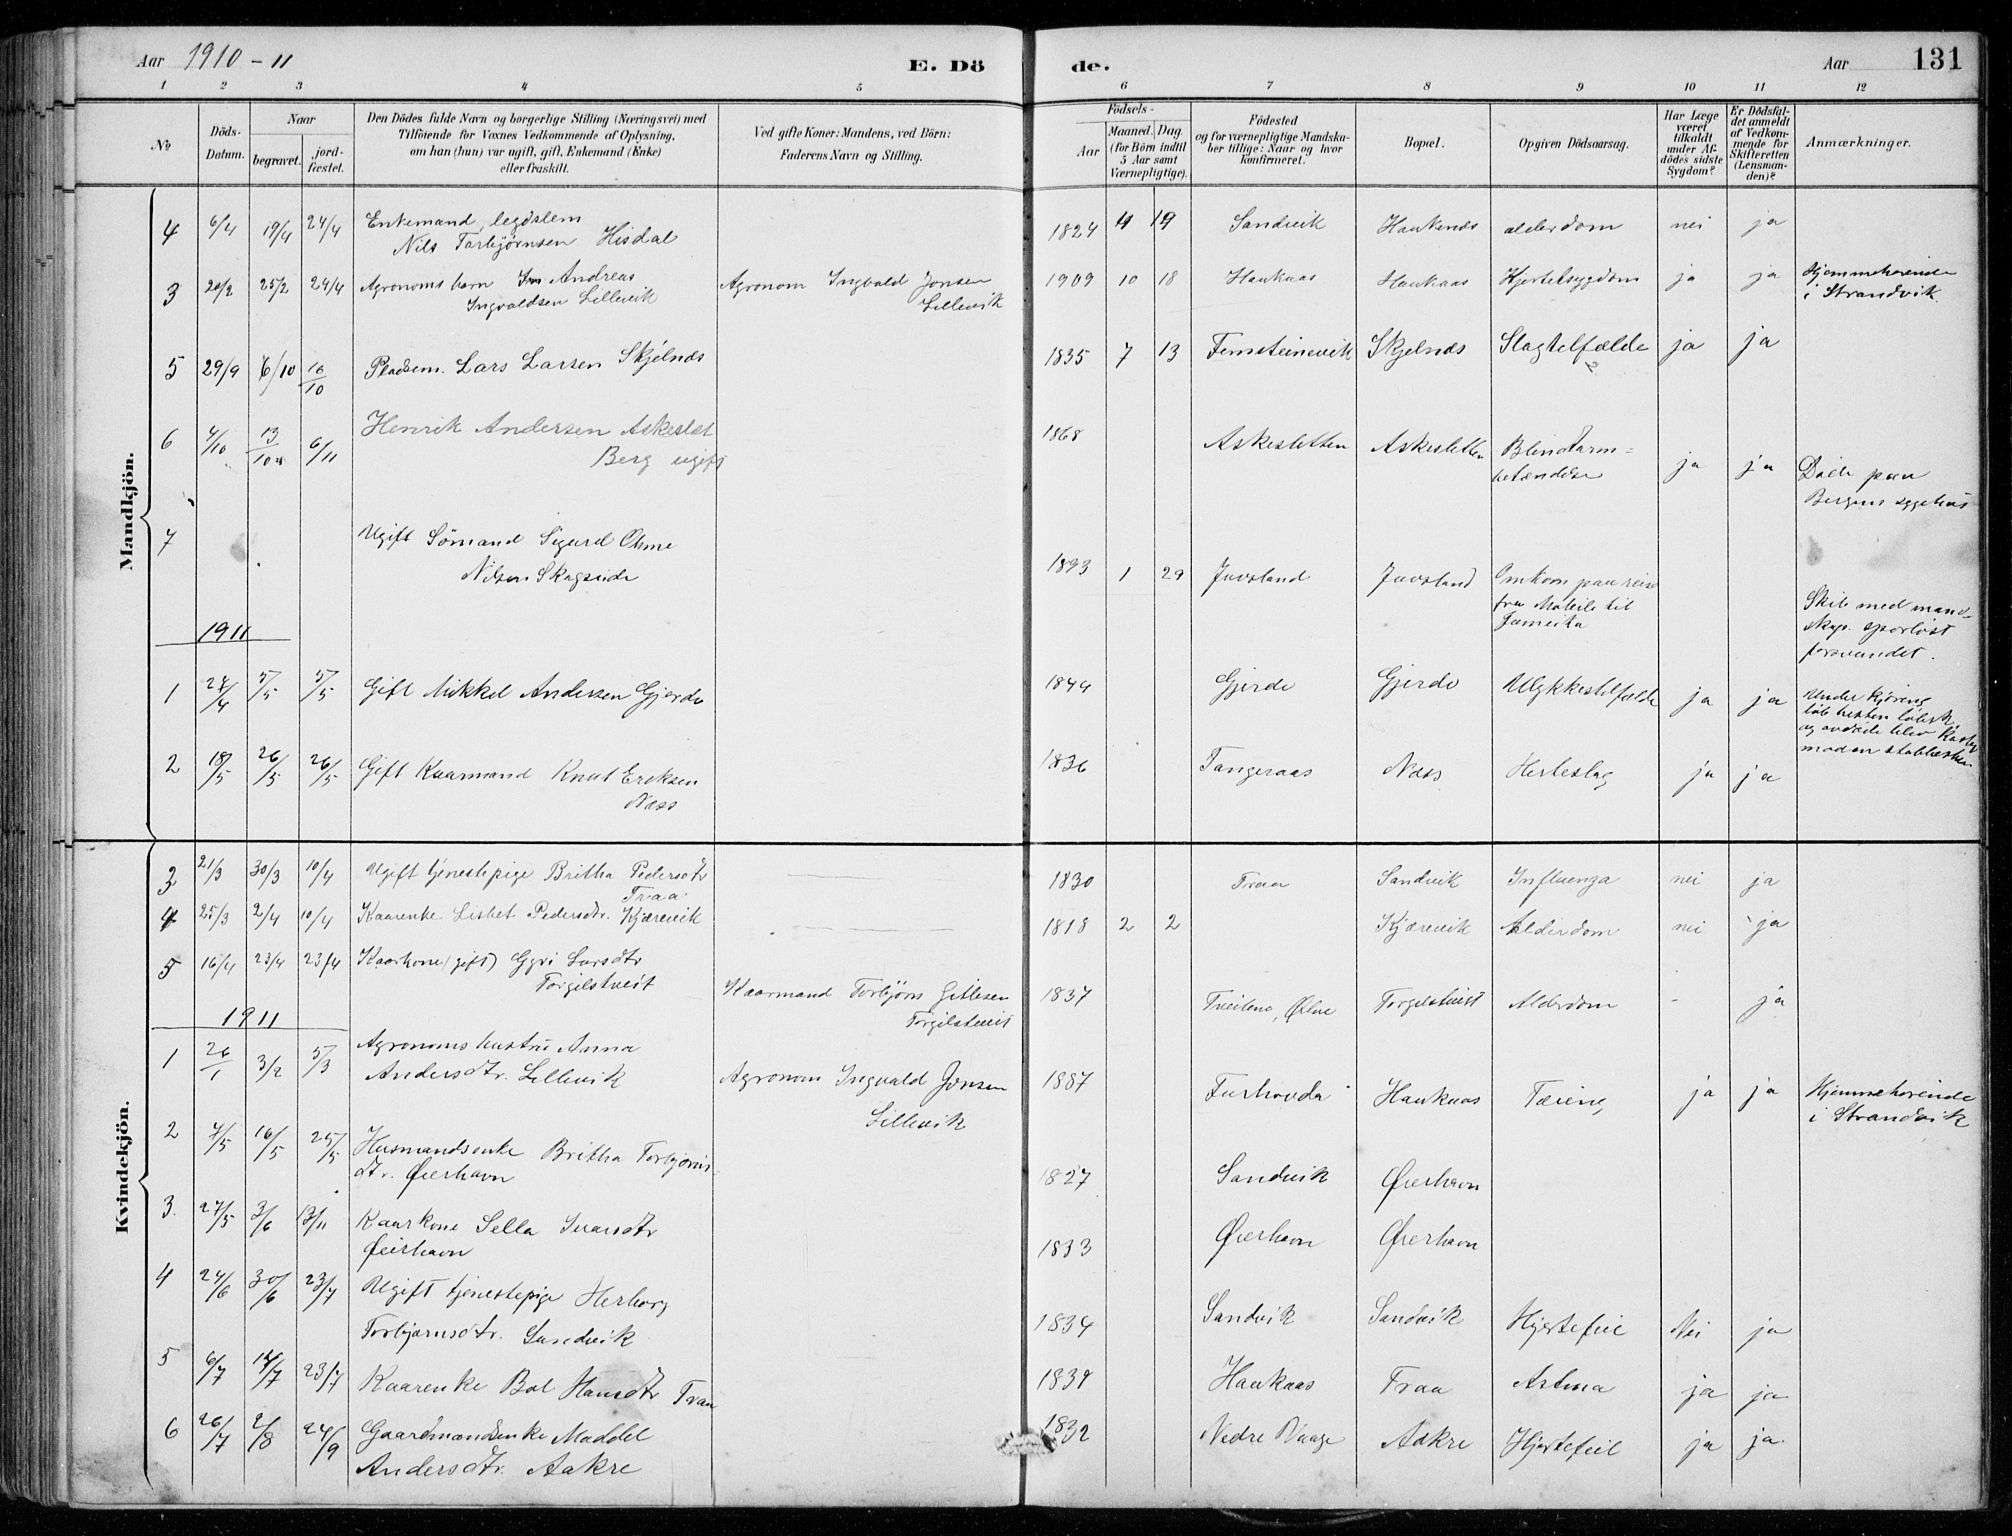 Aar 1910-11 E. Dö de. Aar 131
1 2 3 4 5 6 7 8 9 10 11 12
№
Döds-
Datum.
Naar
begravet.
jord-
fæstet.
Den Dödes fulde Navn og borgerlige Stilling (Næringsvei) med
Tilföiende for Voxnes Vedkommende af Oplysning,
om han (hun) var ugift, gift, Enkemand (Enke)
eller fraskilt.
Ved gifte Koner: Mandens, ved Börn:
Faderens Navn og Stilling.
Födsels-
Aar
Maaned.
Dag.
(for Börn indtil
5 Aar samt
Værnepligtige).
Födested
og for værnepligtige Mandska-
ber tillige: Naar og hvor
konfirmeret.
Bopæl.
Opgiven Dödsaarsag.
Har Læge
været
tilkaldt
under Af-
dödes sidste
Sygdom?
Er Dödsfal-
det anmeldt
af Vedkom-
mende for
Skifteretten
(Lensman-
den)?
Anmærkninger.
Mandkjön.
4 6/4 19/4 24/4 Enkemand, legdslem
Nils Torbjørnsen Hisdal
1824 4 19 Sandvik alderdom nei ja
3 20/2 25/2 24/4 Agronoms barn Andreas
Ingvaldsen Lillevik
Agronom Ingvald Jonsen
Lillevik
1909 10 18 Haukaas Haukaas Hjertesygdom ja ja Hjemmehørende
i Strandvik
5 29/9 6/10 16/10 Pladsm. Lars Larsen Skjelnæs
1835 7 13 Femsteinevik Skjelnæs Slagtilfælde ja ja
6 4/10 13/10 6/11 Henrik Andersen Askeslet
Berg ugift
1868 Askesletten Askesletten Blindtarm-
betændelse ja ja Døde paa
Bergens sygehus
7 Ugift Sömand Sigurd
Nilsen Skagseide
1893 1 29 Omkom paa reise
fra Mobile til
Jameica
Skib med mand-
skap sporløst
forsvundet.
1911
1 27/4 5/5 5/5 Gift Mikkel Andersen Gjerde
1844 Gjerde Gjerde Ulykkestilfælde ja ja Under kjöring
løb hesten løbsk
og avdøde blev kastet
mod en
2 18/5 26/5 26/5 Gift Kaarmand Knut Eriksen
Næss
1836 Tangeraas Næss Herteslag ja ja
Kvindekjön.
3 21/3 30/3 10/4 Ugift tjenestepige Britha Pedersdtr
Traa
1830 Traa Sandvik Influenza nei ja
4 25/3 2/4 10/4 Kaarenke Lisbet Pedersdtr. Kjærevik
1818 2 2 Kjærevik Alderdom nei ja
5 16/4 23/4 23/4 Kaarkone (gift) Gyri Larsdtr
Torgilstveit
Kaarmand Torbjørn Gitlesen
Torgilstveit
1837 Tveitene, Ølve Torgilstveit Alderdom - ja
1911
1 26/1 3/2 5/3 Agronoms hustru Anna
Andersdtr. Lillevik
Agronom Ingvald Jonsen
Lillevik
1887 Furhovda Haukaas Tæring ja ja Hjemmehørende
i Strandvik
2 7/5 16/5 25/5 Husmandsenke Britha Torbjørns-
dtr. Øierhavn
1827 Sandvik Øierhavn
3. 27/5 3/6 13/11 Kaarkone Sella Ivarsdtr
Øierhavn
1833 Øierhavn Øierhavn
4 24/6 30/6 23/7 Ugift tjenestepige Herborg
Torbjørnsdtr. Sandvik
1834 Sandvik Sandvik Hjertefeil Nei ja
5 6/7 14/7 23/7 Kaarenke Bol Hansdtr Traa
1838 Haukaas Traa Astma ja ja
6 26/7 2/8 24/9 Gaardmandsenke Maddel
Andersdtr. Aakre
1832 Nedre Baage Aakre Hjertefeil ja ja